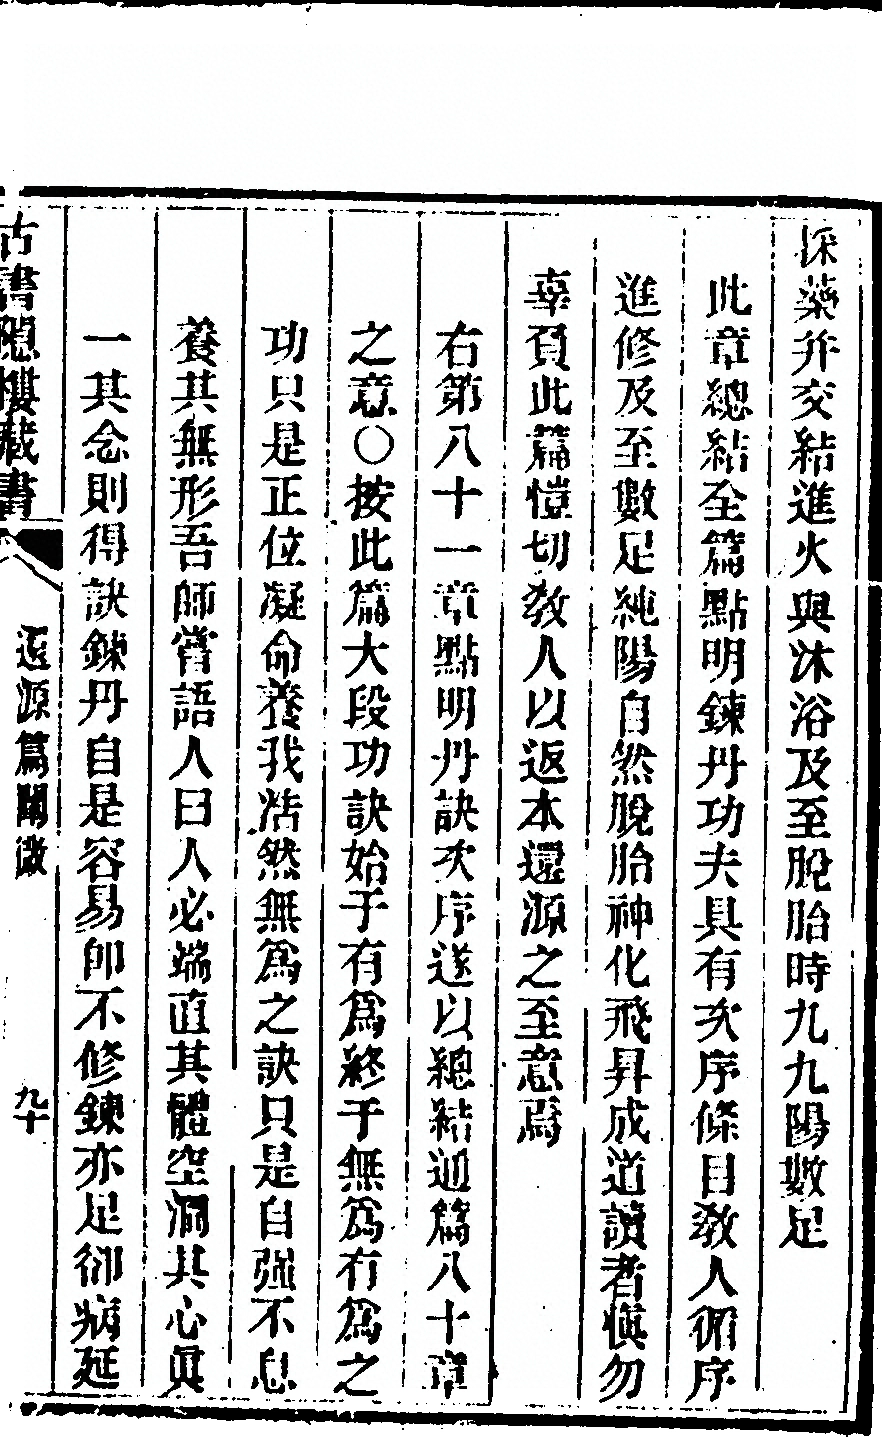 採藥并交結進火與沐浴及至脫胎時九九陽數足
此章總結全篇點明鍊丹功夫具有次序條目敎人循序
進修及至數足純陽自然脫胎神化飛昇成道讀者愼勿
辜負此篇愷切敎人以返本還源之至意焉
右第八十一章點明丹訣次序遂以總結通篇八十章
之意〇按此篇大段功訣始于有爲終于無爲有爲之
功只是正位凝命養我浩然無爲之訣只是自强不息
養其無形吾師嘗語人曰人必端直其體空洞其心眞
一其念則得訣鍊丹自是容易卽不修鍊亦足卻病延
古書隱樓藏書
還源篇闡微
九十